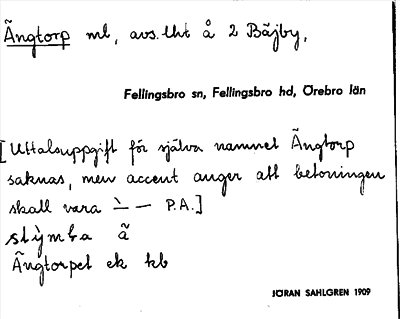 Ängtorp ml, avs. lht å 2 Bäjby,
Fellingsbro sn, Fellingsbro hd, Örebro län
[Uttalsuppgift för själva namnet Ängtorp
saknas, men accent anger att betoningen
skall vara `– – P.A.]
å
Ängtorpet ek kb
JÖRAN SAHLGREN 1909